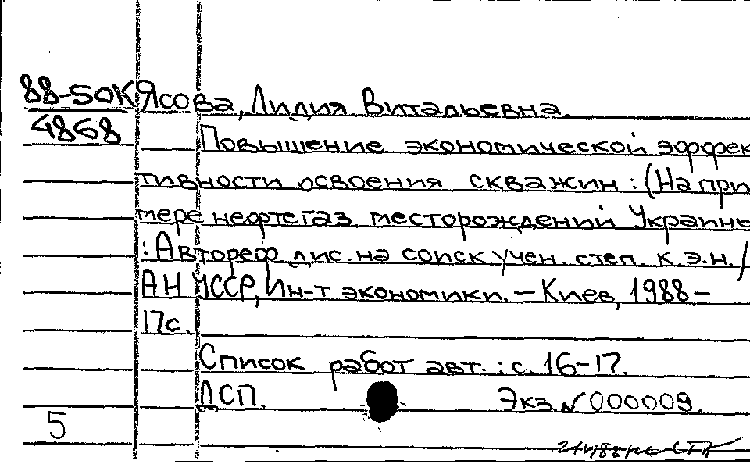 88-50К Ясова, Лидия Витальевна.
4868 Повышение экономической эффек
тивности освоения скважин : (На при
мере нефтегаз. месторождений Украины
: Автореф. дис. на соиск учен. степ. к.э.н. /
АН УССР, Ин-т экономики. — Киев, 1988 –
17с.
Список работ авт. : с. 16-17.
ДСП. Экз. № 000009.
5